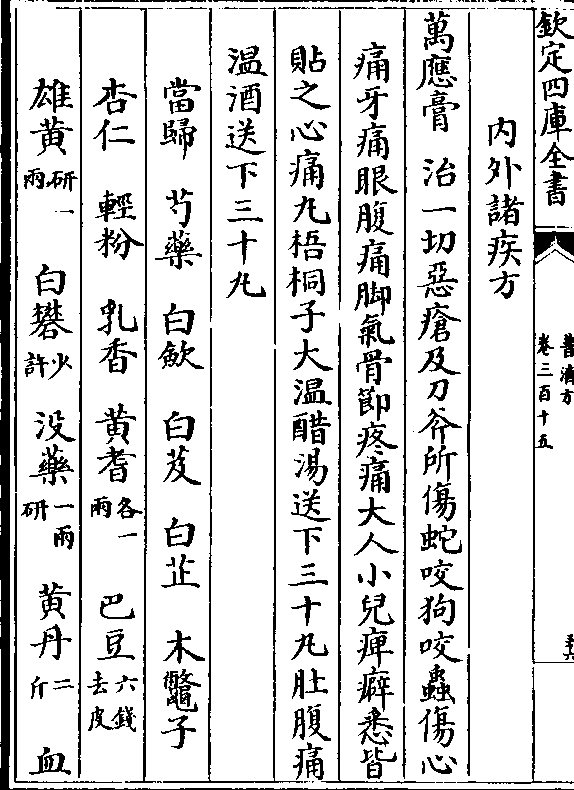 欽定四庫全書
普濟方
卷三百十五
内外諸疾方
萬應膏　治一切惡瘡及刀斧所傷蛇咬狗咬蟲傷心
痛牙痛眼腹痛脚氣骨節疼痛大人小兒痺癖悉皆
貼之心痛丸梧桐子大温醋湯送下三十丸肚腹痛
温酒送下三十丸
當歸　芍藥　白歛　白芨　白芷　木鼈子
杏仁　輕粉　乳香　黄耆各一兩　巴豆六錢去皮
雄黄研一兩　白礬少許　没藥一兩研　黄丹二斤　血